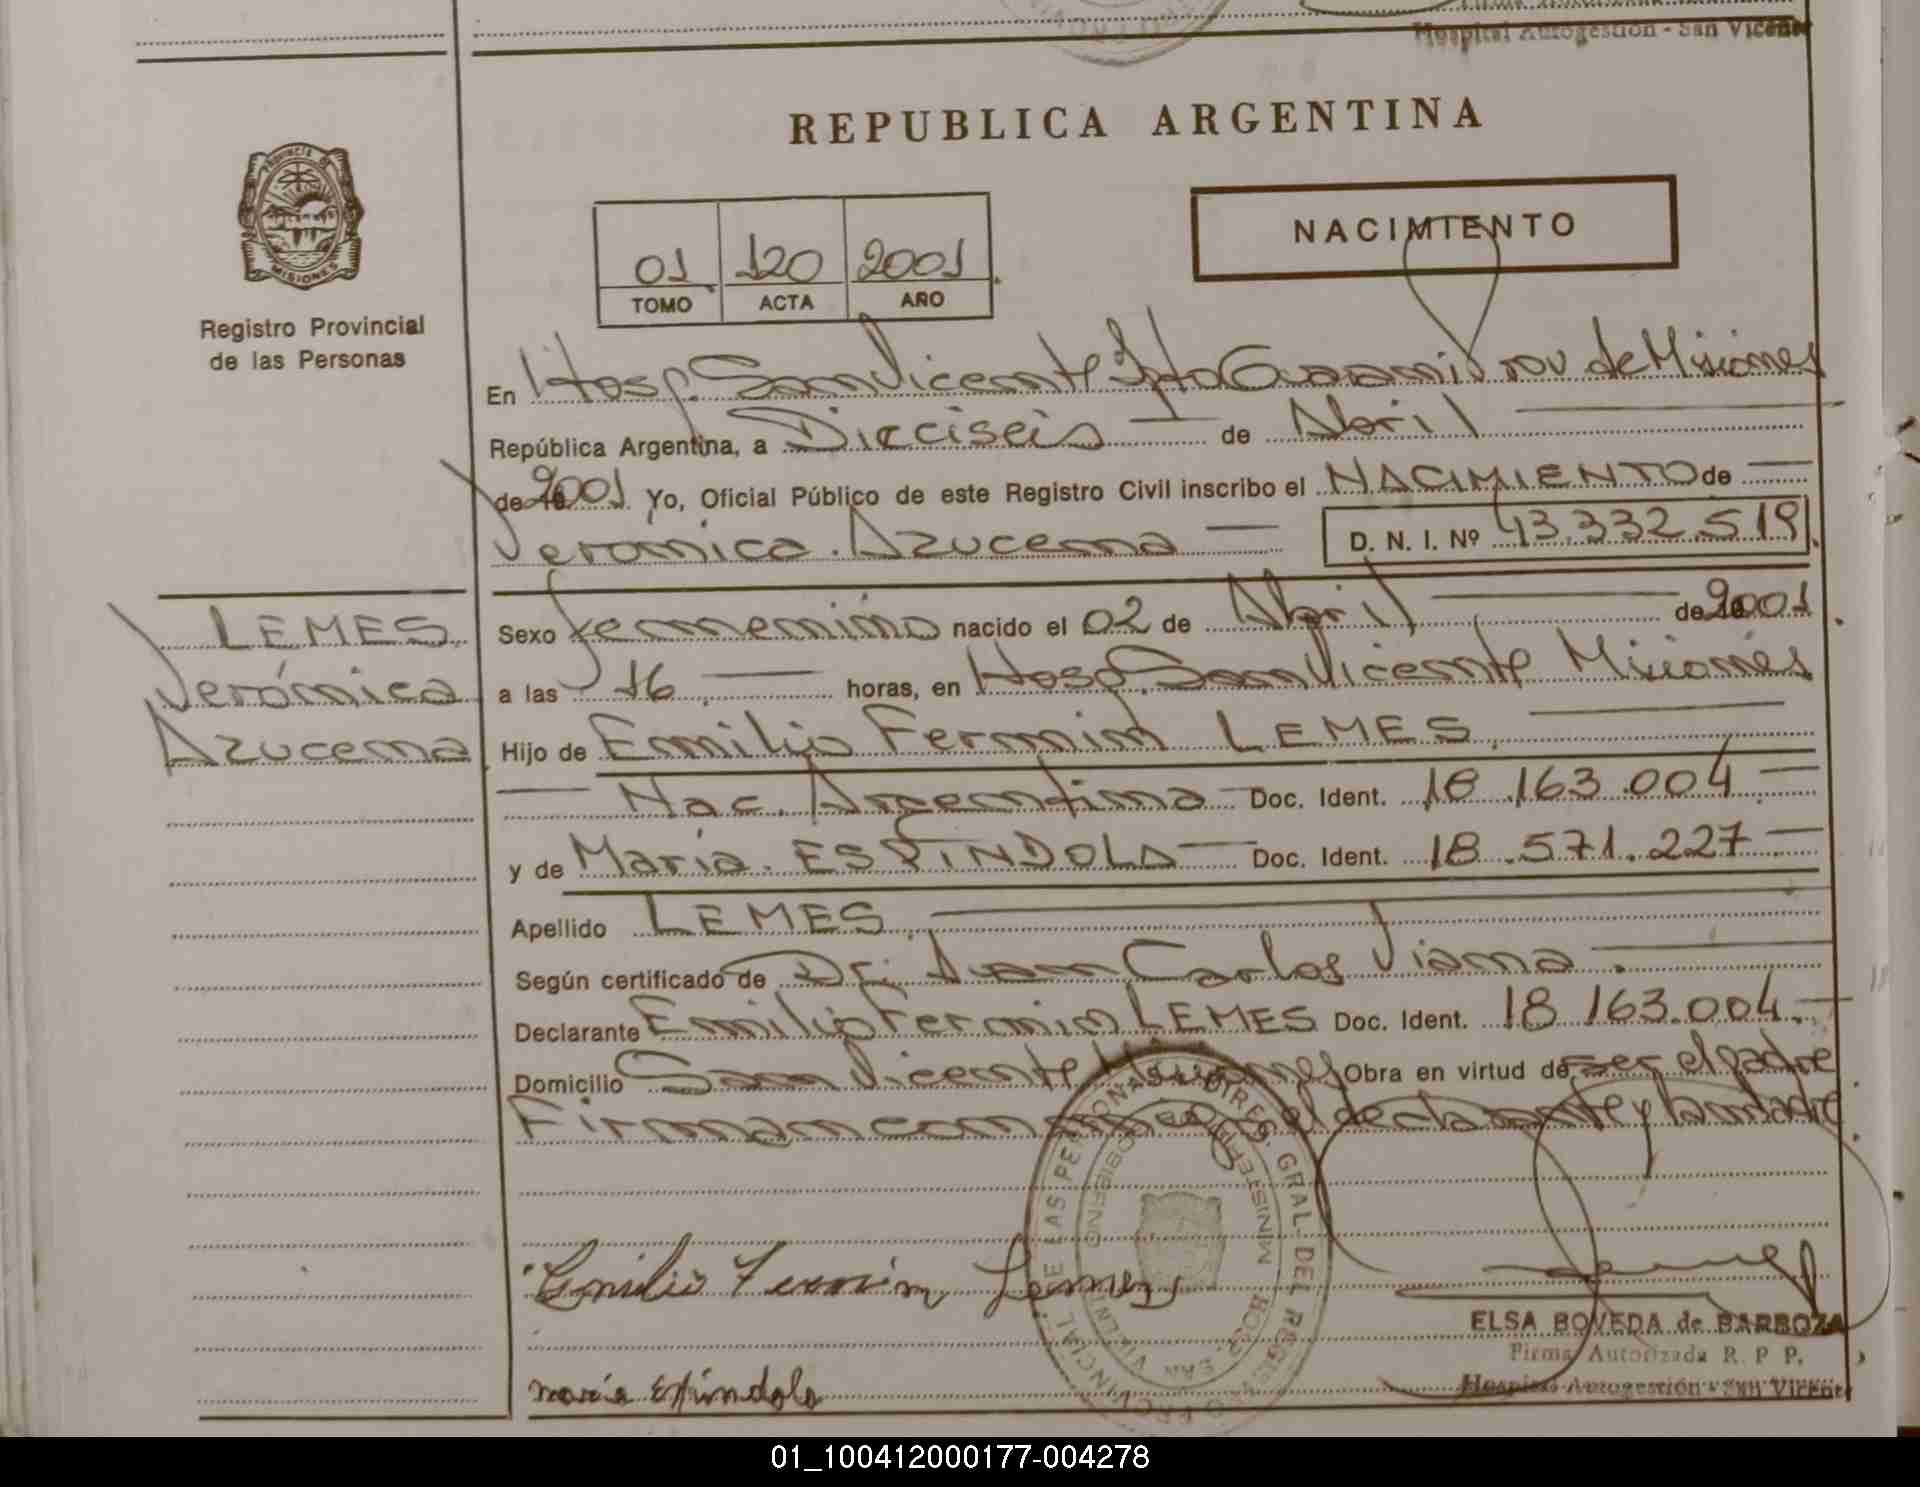 Hospital Autogestión - San Vicente
REPUBLICA ARGENTINA
PROVINCIA DE
MISIONES
Registro Provincial
de las Personas
NACIMIENTO
01 120 2001
TOMO ACTA AÑO
En Hosp. San Vicente Dpto Guaraní Prov de Misiones
República Argentina, a Dieciseis de Abril
de 2001 Yo, Oficial Público de este Registro Civil inscribo el NACIMIENTO de
Verónica Azucena D. N. I. Nº 43.332.519
LEMES
Verónica
Azucena
Sexo femenino nacido el 02 de Abril de 2001
a las 16 horas, en Hosp. San Vicente Misiones
Hijo de Emilio Fermin LEMES.
Nac. Argentina Doc. Ident. 18.163.004
y de María ESPINDOLA Doc. Ident. 18.571.227
Apellido LEMES.
Según certificado de Dr. Juan Carlos Viana.
Declarante Emilio Fermin LEMES Doc. Ident. 18 163.004.
Domicilio San Vicente Misiones Obra en virtud de ser el padre
Firman conmigo el declarante y la madre
Emilio Fermin Lemes
maria Espindola
DIREC. GRAL. DEL REGISTRO PROVINCIAL DE LAS PERSONAS
HOSP. SAN VICENTE
ELSA BOVEDA de BARBOZA
Firma Autorizada R. P. P.
Hospital Autogestión - San Vicente
01_100412000177-004278